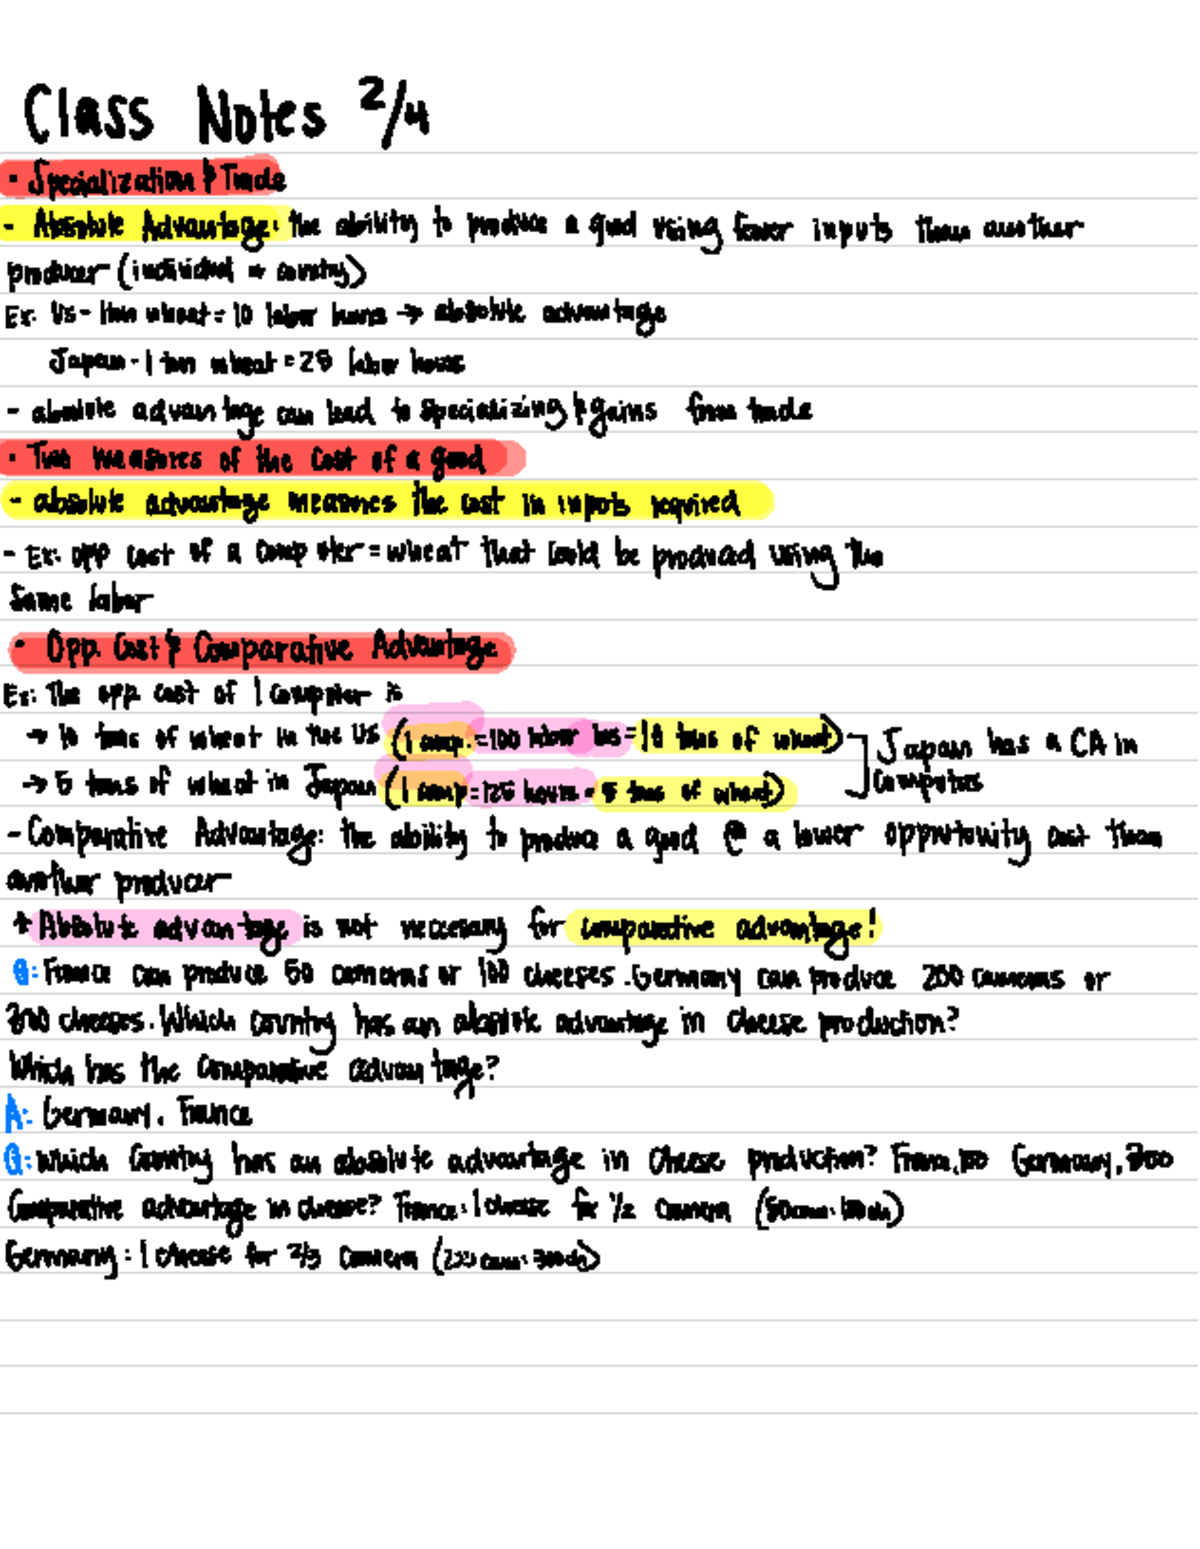 Class Notes 2/4
• Specialization & Trade
- Absolute Advantage: the ability to produce a good using fewer inputs than another
producer (individual or country)
Ex: US - 1 ton wheat = 10 labor hours → absolute advantage
Japan - 1 ton wheat = 25 labor hours
- absolute advantage can lead to specializing & gains from trade
• Two measures of the cost of a good
- absolute advantage measures the cost in inputs required
- Ex: opp cost of a computer = wheat that could be produced using the
same labor
• Opp. Cost & Comparative Advantage
Ex: The opp cost of 1 computer is
→ 10 tons of wheat in the US (1 comp. = 100 labor hrs = 10 tons of wheat) Japan has a CA in
→ 5 tons of wheat in Japan (1 comp = 125 hours = 5 tons of wheat) Computers
- Comparative Advantage: the ability to produce a good @ a lower opportunity cost than
another producer
* Absolute advantage is not necessary for comparative advantage!
Q: France can produce 50 cameras or 100 cheeses. Germany can produce 200 cameras or
300 cheeses. Which country has an absolute advantage in cheese production?
Which has the comparative advantage?
A: Germany. France
Q: Which Country has an absolute advantage in cheese production? France, 100 Germany, 300
Comparative advantage in cheese? France: 1 cheese for 1/2 camera (50cam:100ch)
Germany: 1 cheese for 2/3 camera (200 cam: 300ch)